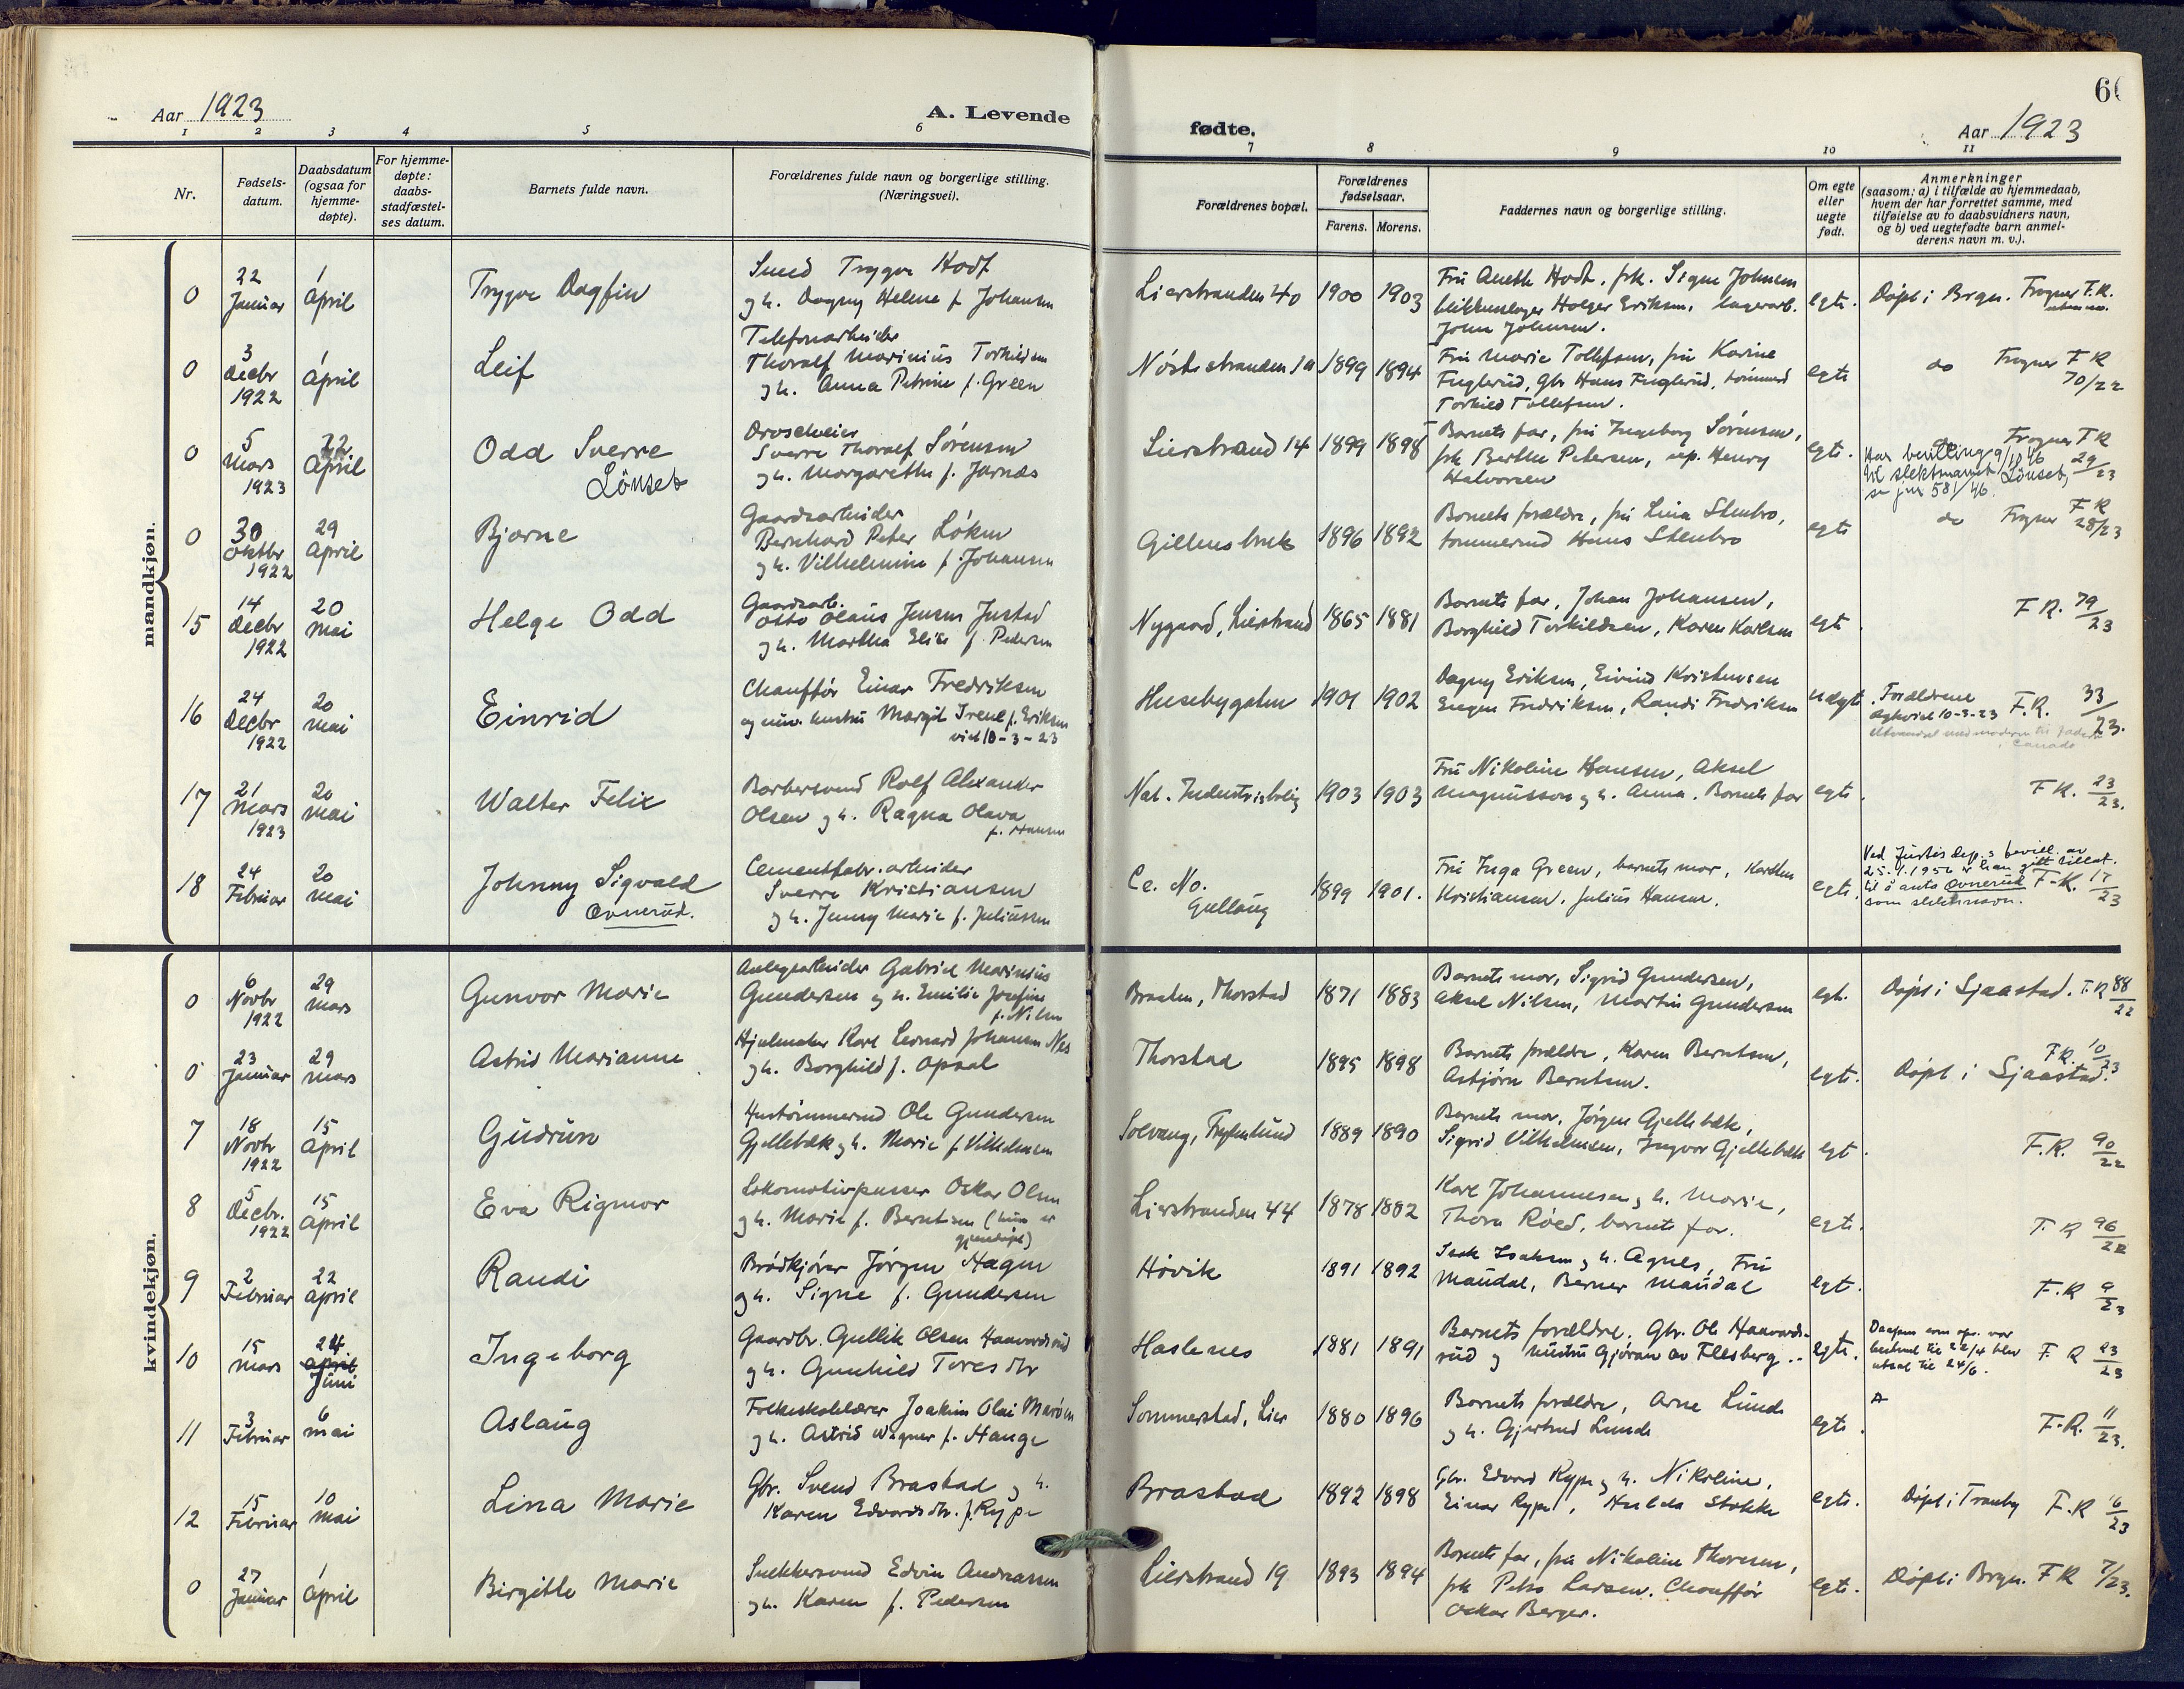 Aar 1923
A. Levende
fødte.
Aar 1923
1 2 3 4 5 6 7 8 9 10 11
Nr.
Fødsels-
datum.
Daabsdatum
(ogsaa for
hjemme-
døpte).
For hjemme-
døpte:
daabs-
stadfæstel-
ses datum.
Barnets fulde navn.
Forældrenes fulde navn og borgerlige stilling.
(Næringsvei).
Forældrenes bopæl.
Forældrenes
fødselsaar.
Farens. Morens.
Faddernes navn og borgerlige stilling.
Om egte
eller
uegte
født.
Anmerkninger
(saasom: a) i tilfælde av hjemmedaab,
hvem der har forrettet samme, med
tilføielse av to daabsvidners navn,
og b) ved uegtefødte barn anmel-
derens navn m. v.).
mandkjøn.
0
22
Januar
1
April
Trygve Dagfin
Smed Trygve Hodt
og h. Dagny Helene f. Johansen
Lierstranden 40
1900 1903
Fru Anette Hodt, frk. Signe Johnsen
blikkenslager Holger Eriksen, lagerarb.
John Johnsen.
egte.
Døpt i Brgn. Frogner F.R.
0
3
Decbr
1922
1
April
Leif
Telefonarbeider
Thoralf Marinius Torkildsen
og h. Anna Petrine f. Green
Nøstestranden 1a
1899 1894
Fru Marie Tollefsen, fru Karine
Fuglerud, Gbr Hans Fuglerud, tømmerm
Torkild Tollefsen.
egte
do Frogner F R
70/22
0
5
Mars
1923
22
April
Odd Sverre
Lönset
Droscheeier
Sverre Thoralf Sørensen
og h. Margarethe f. Jarnæs
Lierstrand 14
1899 1898
Barnets far, fru Ingeborg Sørensen,
frk Berthe Petersen, rep. Henry
Halvorsen
egte.
do Frogner F R
29/23
Har bevilling 9/11 46
til slektsnavnet Lönset,
se jnr 581/46.
0
30
Oktbr
1922
29
April
Bjarne
Gaardsarbeider
Bernhard Peter Løken
og h. Vilhelmine f. Johansen
Gillensbruk
1896 1892
Barnets forældre, fru Lina Stenbro,
tømmermd Hans Stenbro
egte
do Frogner F R
28/23
15
14
Decbr
1922
20
Mai
Helge Odd
Gaardsarb.
Otto Olaus Jensen Justad
og h. Martha Elise f. Pedersen
Nygaard, Lierstrand
1865 1881
Barnets far, Johan Johansen,
Borghild Torkildsen, Karen Karlsen
egte
F R. 79/23
16
24
Decbr
1922
20
Mai
Einrid
Chauffør Einar Fredriksen
og nuv. hustru Margit Irene f. Eriksen
viet 10-3-23
Husebygaten
1901 1902
Dagny Eriksen, Eivind Kristensen
Eugen Fredriksen, Randi Fredriksen
uegte
Forældrene
egteviet 10-3-23 F.R. 33/23.
Utvandret med moderen til faderen
i Canada
17
21
Mars
1923
20
Mai
Walter Felix
Barbersvend Rolf Alexander
Olsen og h. Ragna Olava
f. Hansen
Nat. Industribolig
1903 1903
Fru Nikoline Hansen, Aksel
Magnusson og h. Anna. Barnets far
egte.
F R. 23/23.
18
24
Februar
20
Mai
Johnny Sigvald
Ovnerud.
Cementfabr. arbeider
Sverre Kristiansen
og h. Jenny Marie f. Juliussen
Ce. No.
Gullaug
1899 1901.
Fru Inga Green, barnets mor, Karsten
Kristiansen, Julius Hansen.
egte.
Ved Justisdep.s bevill. av
25-1-1950 er han gitt tillat.
til å anta Ovnerud F-R. 17/23
som slektsnavn.
kvindekjøn.
0
6
Novbr
1922
29
Mars
Gunvor Marie
Anlegsarbeider Gabriel Marinius
Gundersen og h. Emilie Josefine
f. Nilsen
Braaten, Thorstad
1871 1883
Barnets mor, Sigrid Gundersen,
Aksel Nilsen, Martin Gundersen
egte.
Døpt i Sjaastad. F.R 88/22
0
23
Januar
29
Mars
Astrid Marianne
Hjulmaker Karl Leonard Johansen Nes
og h. Borghild f. Opsal
Thorstad
1895 1898
Barnets forældre, Karen Berntsen,
Asbjørn Berntsen.
egte.
F.R. 10/23
Døpt i Sjaastad.
7
18
Novbr
1922
15
April
Gudrun
Hustømmermd Ole Gundersen
Gjellebæk og h. Marie f. Vilhelmsen
Solvang, Frylenlund
1889 1890
Barnets mor, Jørgen Gjellebæk,
Sigrid Vilhelmsen, Ingvar Gjellebæk
egte.
F.R. 90/22
8
5
Decbr.
1922
15
April
Eva Rigmor
Lokomotivpusser Oskar Olsen
og h. Marie f. Berntsen (hun er
gjendøpt)
Lierstranden 44
1878 1882
Karl Johannesen og h. Marie,
Thora Røed, barnets far.
egte.
F. R 96/22
9
2
Februar
22
April
Randi
Brødkjører Jørgen Hagen
og h. Signe f. Gundersen
Høvik
1891 1892
Isak Isaksen og h. Agnes, Fru
Maudal, Berner Maudal
egte.
F.R 9/23
10
15
Mars
24
April
Juni
Ingeborg
Gaardbr. Gullik Olsen Haavardsrud
og h. Gunhild Toresdtr
Haslenes
1881 1891
Barnets forældre. Gbr. Ole Haavards-
rud og hustru Gjøran av Flesberg.
egte.
Daapen som opr. var
bestemt til 22/4 blev
utsat til 24/6.
F. R 23/23
11
3
Februar
6
Mai
Aslaug
Folkeskolelærer Joakim Olai
og h. Astrid Wagner f. Hauge
Sommerstad, Lier
1880 1896
Barnets forældre, Arne Lunde
og h. Gjertrud Lunde
egte.
F.R. 11/23.
12
15
Februar
10
Mai
Lina Marie
Gbr. Svend Brastad og h.
Karen Edvardsdtr. f. Rype
Brastad
1892 1898
Gbr. Edvard Rype og h. Nikoline,
Einar Rype, Hulda Stokke
egte.
Døpt i Tranby F.R 16/23
0
27
Januar
1
April
Birgitte Marie
Snekkersvend Edvin Andreassen
og h. Karen f. Pedersen
Lierstrand 19
1893 1894
Barnets far, fru Nikoline Thoresen,
frk Petra Larsen. Chauffør
Oskar Berger.
egte.
Døpt i Brgn. F R 7/23.